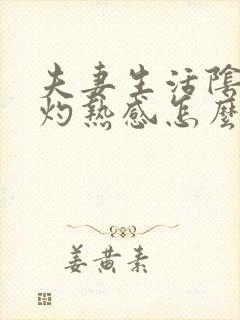 夫妻生活陰
灼熱感怎麼
姜黄素